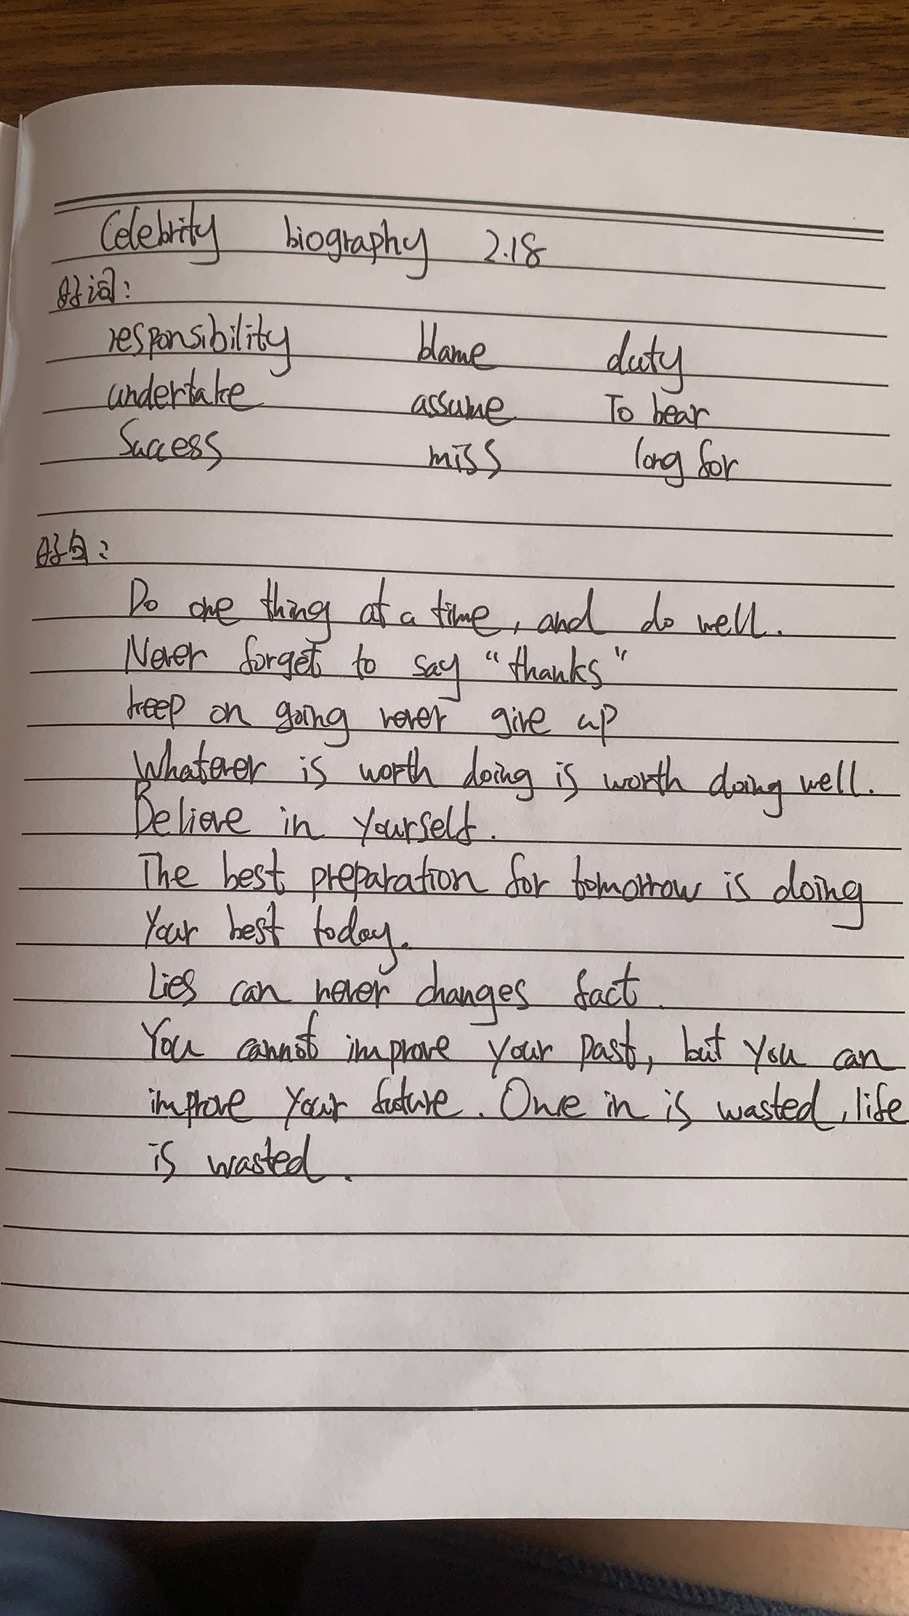 Celebrity biography 2.18
好词:
responsibility blame duty
undertake assume To bear
Success miss long for
好句:
Do one thing at a time, and do well.
Never forget to say "thanks"
keep on going never give up
Whatever is worth doing is worth doing well.
Believe in yourself.
The best preparation for tomorrow is doing
Your best today.
Lies can never changes fact.
You cannot improve your past, but you can
improve your future. One in is wasted, life
is wasted.